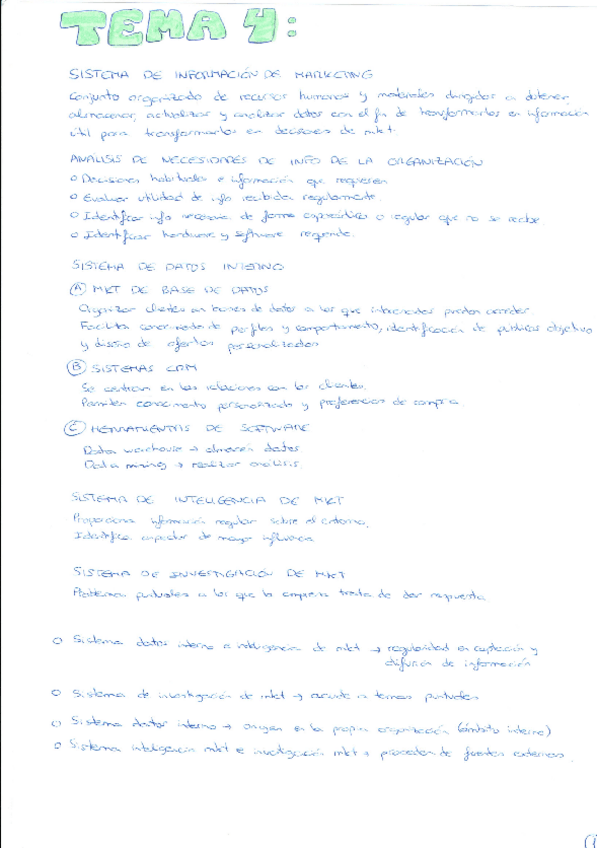 TEMA 4:
SISTEMA DE INFORMACIÓN DE MARKETING
Conjunto organizado de recursos humanos y materiales dirigidos a obtener,
almacenar, actualizar y analizar datos con el fin de transformarlos en información
útil para transformarlos en decisiones de mkt.
ANALISIS DE NECESIDADES DE INFO DE LA ORGANIZACIÓN
o Decisiones habituales e información que requieren
o Evaluar utilidad de info recibida regularmente
o Identificar info necesaria de forma esporádica o regular que no se recibe
o Identificar hardware y software requerido.
SISTEMA DE DATOS INTERNO
A MKT DE BASE DE DATOS
Organizar clientes en bases de datos a los que interesados puedan acceder.
Facilita conocimiento de perfiles y comportamiento, identificación de públicos objetivo
y diseño de ofertas personalizadas
B SISTEMAS CRM
Se centran en las relaciones con los clientes.
Permiten conocimiento personalizado y preferencias de compra.
C HERRAMIENTAS DE SOFTWARE
Data warehouse → almacén datos.
Data mining → realizar análisis.
SISTEMA DE INTELIGENCIA DE MKT
Proporciona información regular sobre el entorno.
Identifica aspectos de mayor influencia
SISTEMA DE INVESTIGACIÓN DE MKT
Problemas puntuales a los que la empresa trata de dar respuesta
o Sistema datos interno e inteligencia de mkt → regularidad en captación y
difusión de información
o Sistema de investigación de mkt → acude a temas puntuales
o Sistema datos interno → origen en la propia organización (ámbito interno)
o Sistema inteligencia mkt e investigación mkt → proceden de fuentes externas.
1